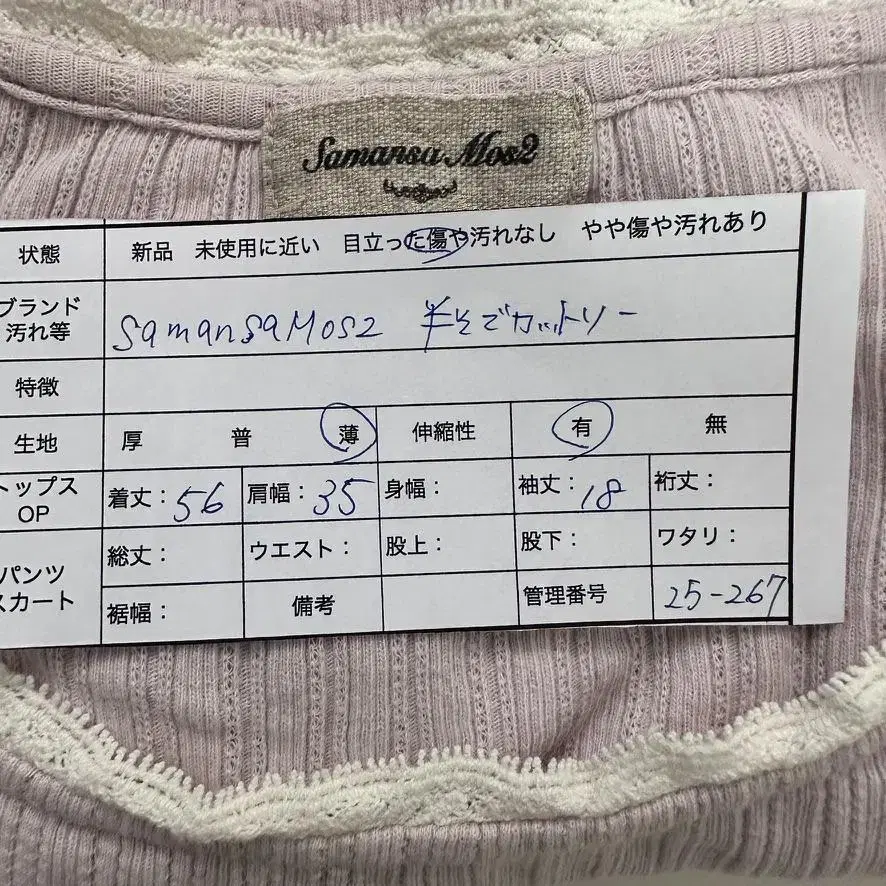 Samansa Mos2
状態 新品 未使用に近い 目立った傷や汚れなし やや傷や汚れあり
ブランド
汚れ等
samansaMos2 半そでカットソー
特徴
生地 厚 普 薄 伸縮性 有 無
トップス
OP
着丈:56 肩幅:35 身幅: 袖丈:18 裄丈:
パンツ
スカート
総丈: ウエスト: 股上: 股下: ワタリ:
裾幅: 備考 管理番号 25-267